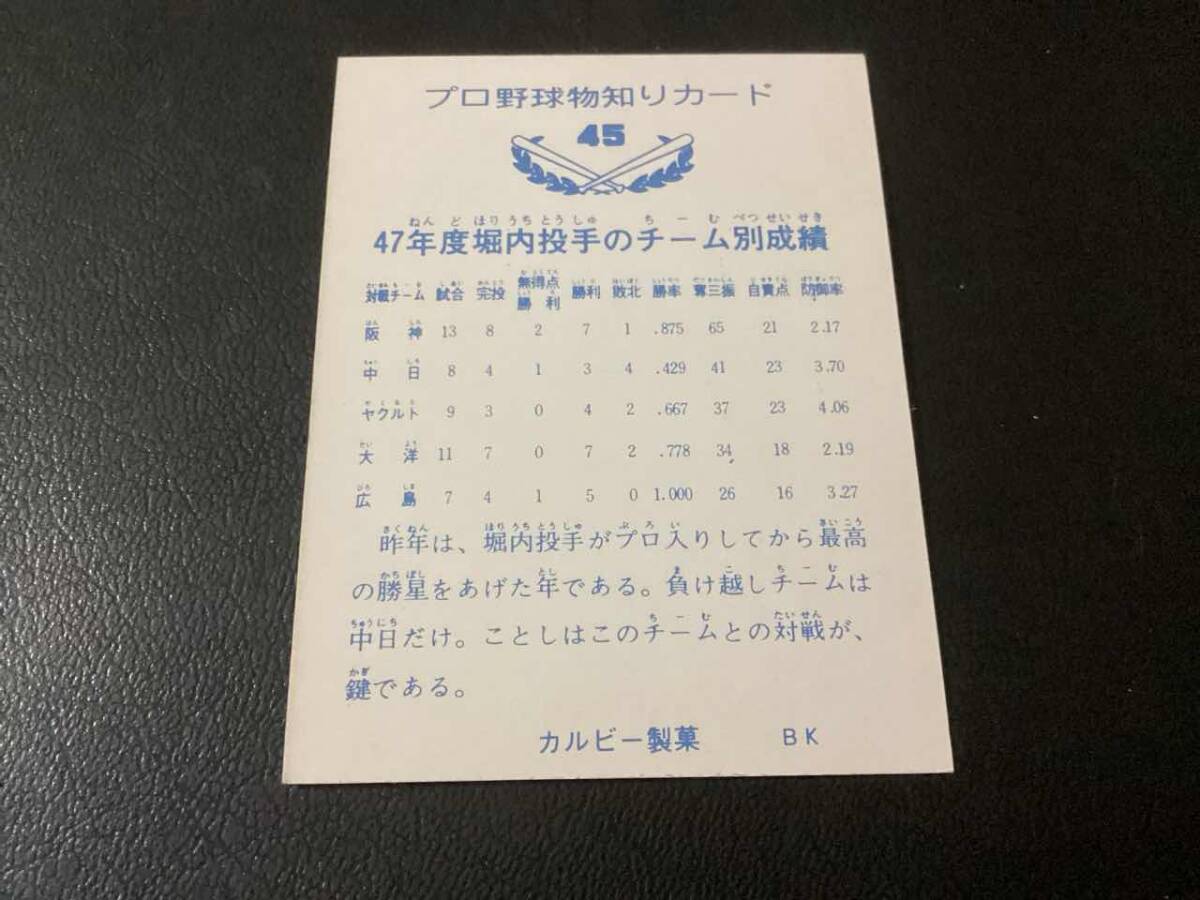 プロ野球物知りカード
45
47年度堀内投手のチーム別成績
対戦チーム 試合 完投 無得点勝利 勝利 敗北 勝率 奪三振 自責点 防御率
阪神 13 8 2 7 1 .875 65 21 2.17
中日 8 4 1 3 4 .429 41 23 3.70
ヤクルト 9 3 0 4 2 .667 37 23 4.06
大洋 11 7 0 7 2 .778 34 18 2.19
広島 7 4 1 5 0 1.000 26 16 3.27
昨年は、堀内投手がプロ入りしてから最高
の勝星をあげた年である。負け越しチームは
中日だけ。ことしはこのチームとの対戦が、
鍵である。
カルビー製菓 BK